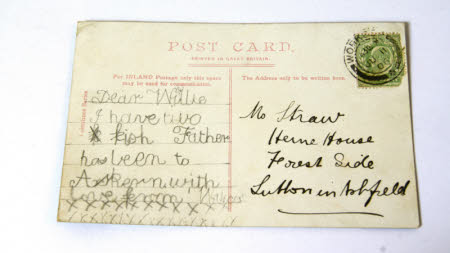 POST CARD.
PRINTED IN GREAT BRITAIN.
For INLAND Postage only this space
may be used for correspondence.
The Address only to be written here.
Dear Willie
I have two
fish Father
has been to
Askern with
love from
xxxxxxxxxxx
Mr Straw
Herne House
Forest Side
Sutton in Ashfield